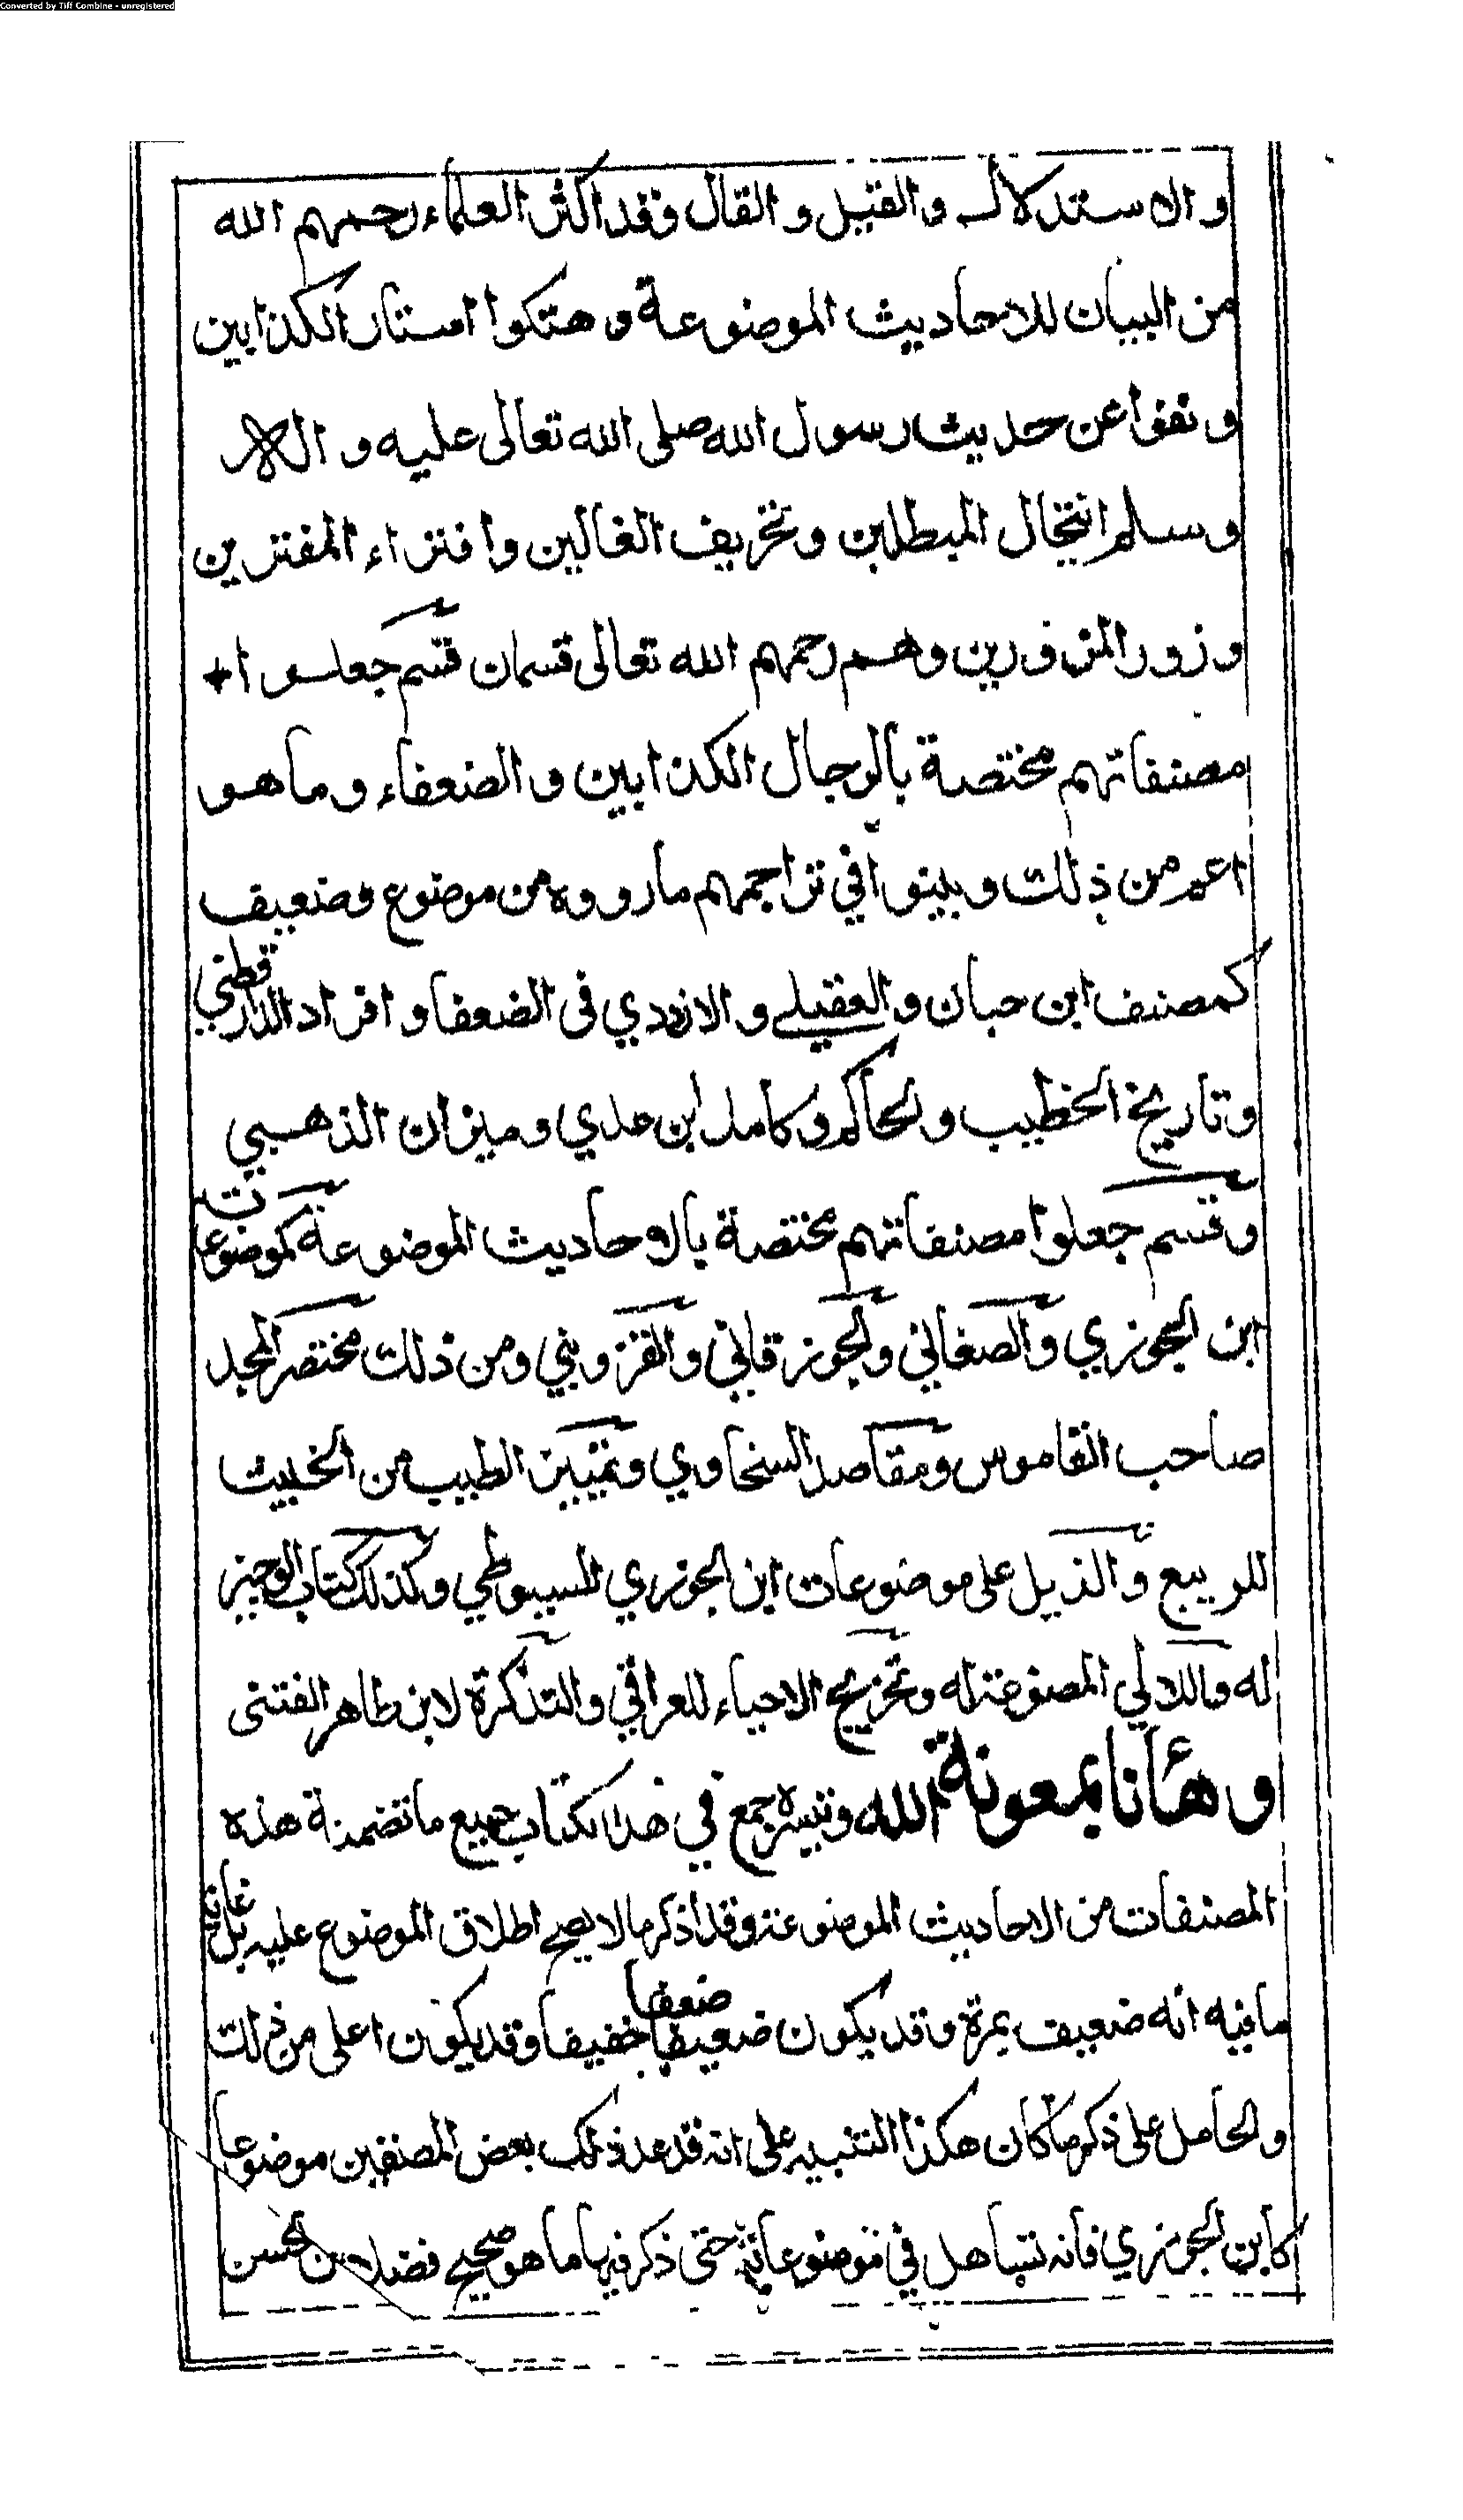 Converted by Tiff Combine - unregistered
والاستدلال والقيل والقال فقد اكثر العلماء رحمهم الله
من البيان للاحاديث الموضوعة وهتكوا استار الكذابين
ونفوا عن حديث رسول الله صلى الله تعالى عليه واله
وسلم انتحال المبطلين وتحريف الغالين وافتراء المفترين
وزور المزورين وهم رحمهم الله تعالى قسمان قسم جعلوا
مصنفاتهم مختصة بالرجال الكذابين والضعفاء وما هو
اعم من ذلك وبينوا في تراجمهم ما رووه من موضوع وضعيف
كمصنف ابن حبان والعقيلي والازدي في الضعفا وافراد الدارقطني
وتاريخ الخطيب والحاكم وكامل ابن عدي وميزان الذهبي
وقسم جعلوا مصنفاتهم مختصة بالاحاديث الموضوعة كموضوعات
ابن الجوزي والصغاني والجوزقاني والقزويني ومن ذلك مختصر المجد
صاحب القاموس ومقاصد السخاوي وتمييز الطيب من الخبيث
للربيع والذيل على موضوعات ابن الجوزي للسيوطي وكذلك كتاب الوجيز
له واللالي المصنوعة له وتخريج الاحياء للعراقي والتذكرة لابن طاهر الفتني
وهأنا بمعونة الله وتيسيره جمع في هذا الكتاب جميع ما تضمنة هذه
المصنفات من الاحاديث الموضوعة وقد اذكر ما لا يصح اطلاق الموضوع عليه بل غاية
ما فيه انه ضعيف بمرة وقد يكون ضعيفا ضعفا خفيفا وقد يكون اعلى من ذلك
والحامل على ذكر ما كان هكذا التنبيه على انه قد عد ذلك بعض المصنفين موضوعا
كابن الجوزي فانه تساهل في موضوعاته حتى ذكر فيها ما هو صحيح فضلا من الحسن